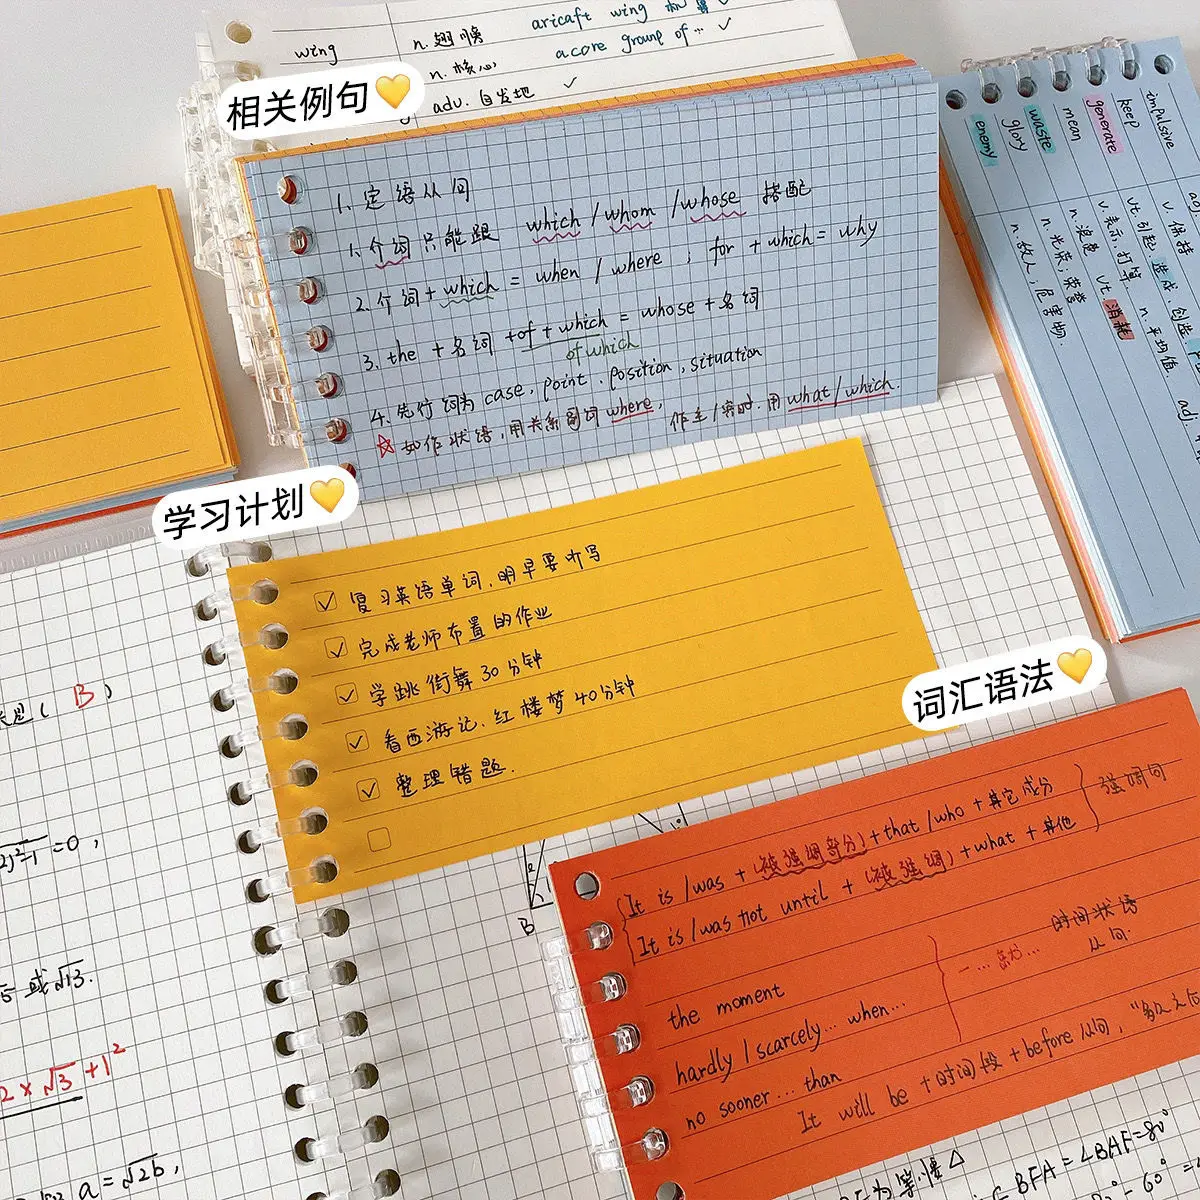 wing
n. 翅膀
aricaft wing 机翼 ✓
n. 核心
a core group of … ✓
adv. 自发地 ✓
相关例句
1、定语从句
1、介词只能跟 which / whom / whose 搭配
2. 介词 + which = when / where ; for + which = why
3. the + 名词 + of + which = whose + 名词
of which
4. 先行词为 case, point, position, situation
☆ 如作状语,用关系副词 where, 作主/宾时.用 what / which.
impulsive adj.
keep v. 保持
generate vt. 引起,造成,创造,产
mean v. 表示,打算 n. 平均值. adj.
waste n. 浪费 vt. 消耗
glory n. 光荣;荣誉
enemy n. 敌人,危害物.
学习计划
复习英语单词,明早要听写
完成老师布置的作业
学跳街舞30分钟
看西游记、红楼梦40分钟
整理错题.
词汇语法
It is /was + (被强调部分) + that / who + 其它成分
It is /was not until + (被强调) + what + 其他
强调句
the moment
hardly / scarcely … when…
no sooner … than
一…就…
时间状语
从句.
It will be + 时间段 + before 从句,
( B )
=0 ,
或√13.
2 × √3 + 1²
a = √2b,
B
△
BFA = ∠BAF = 80°
60°